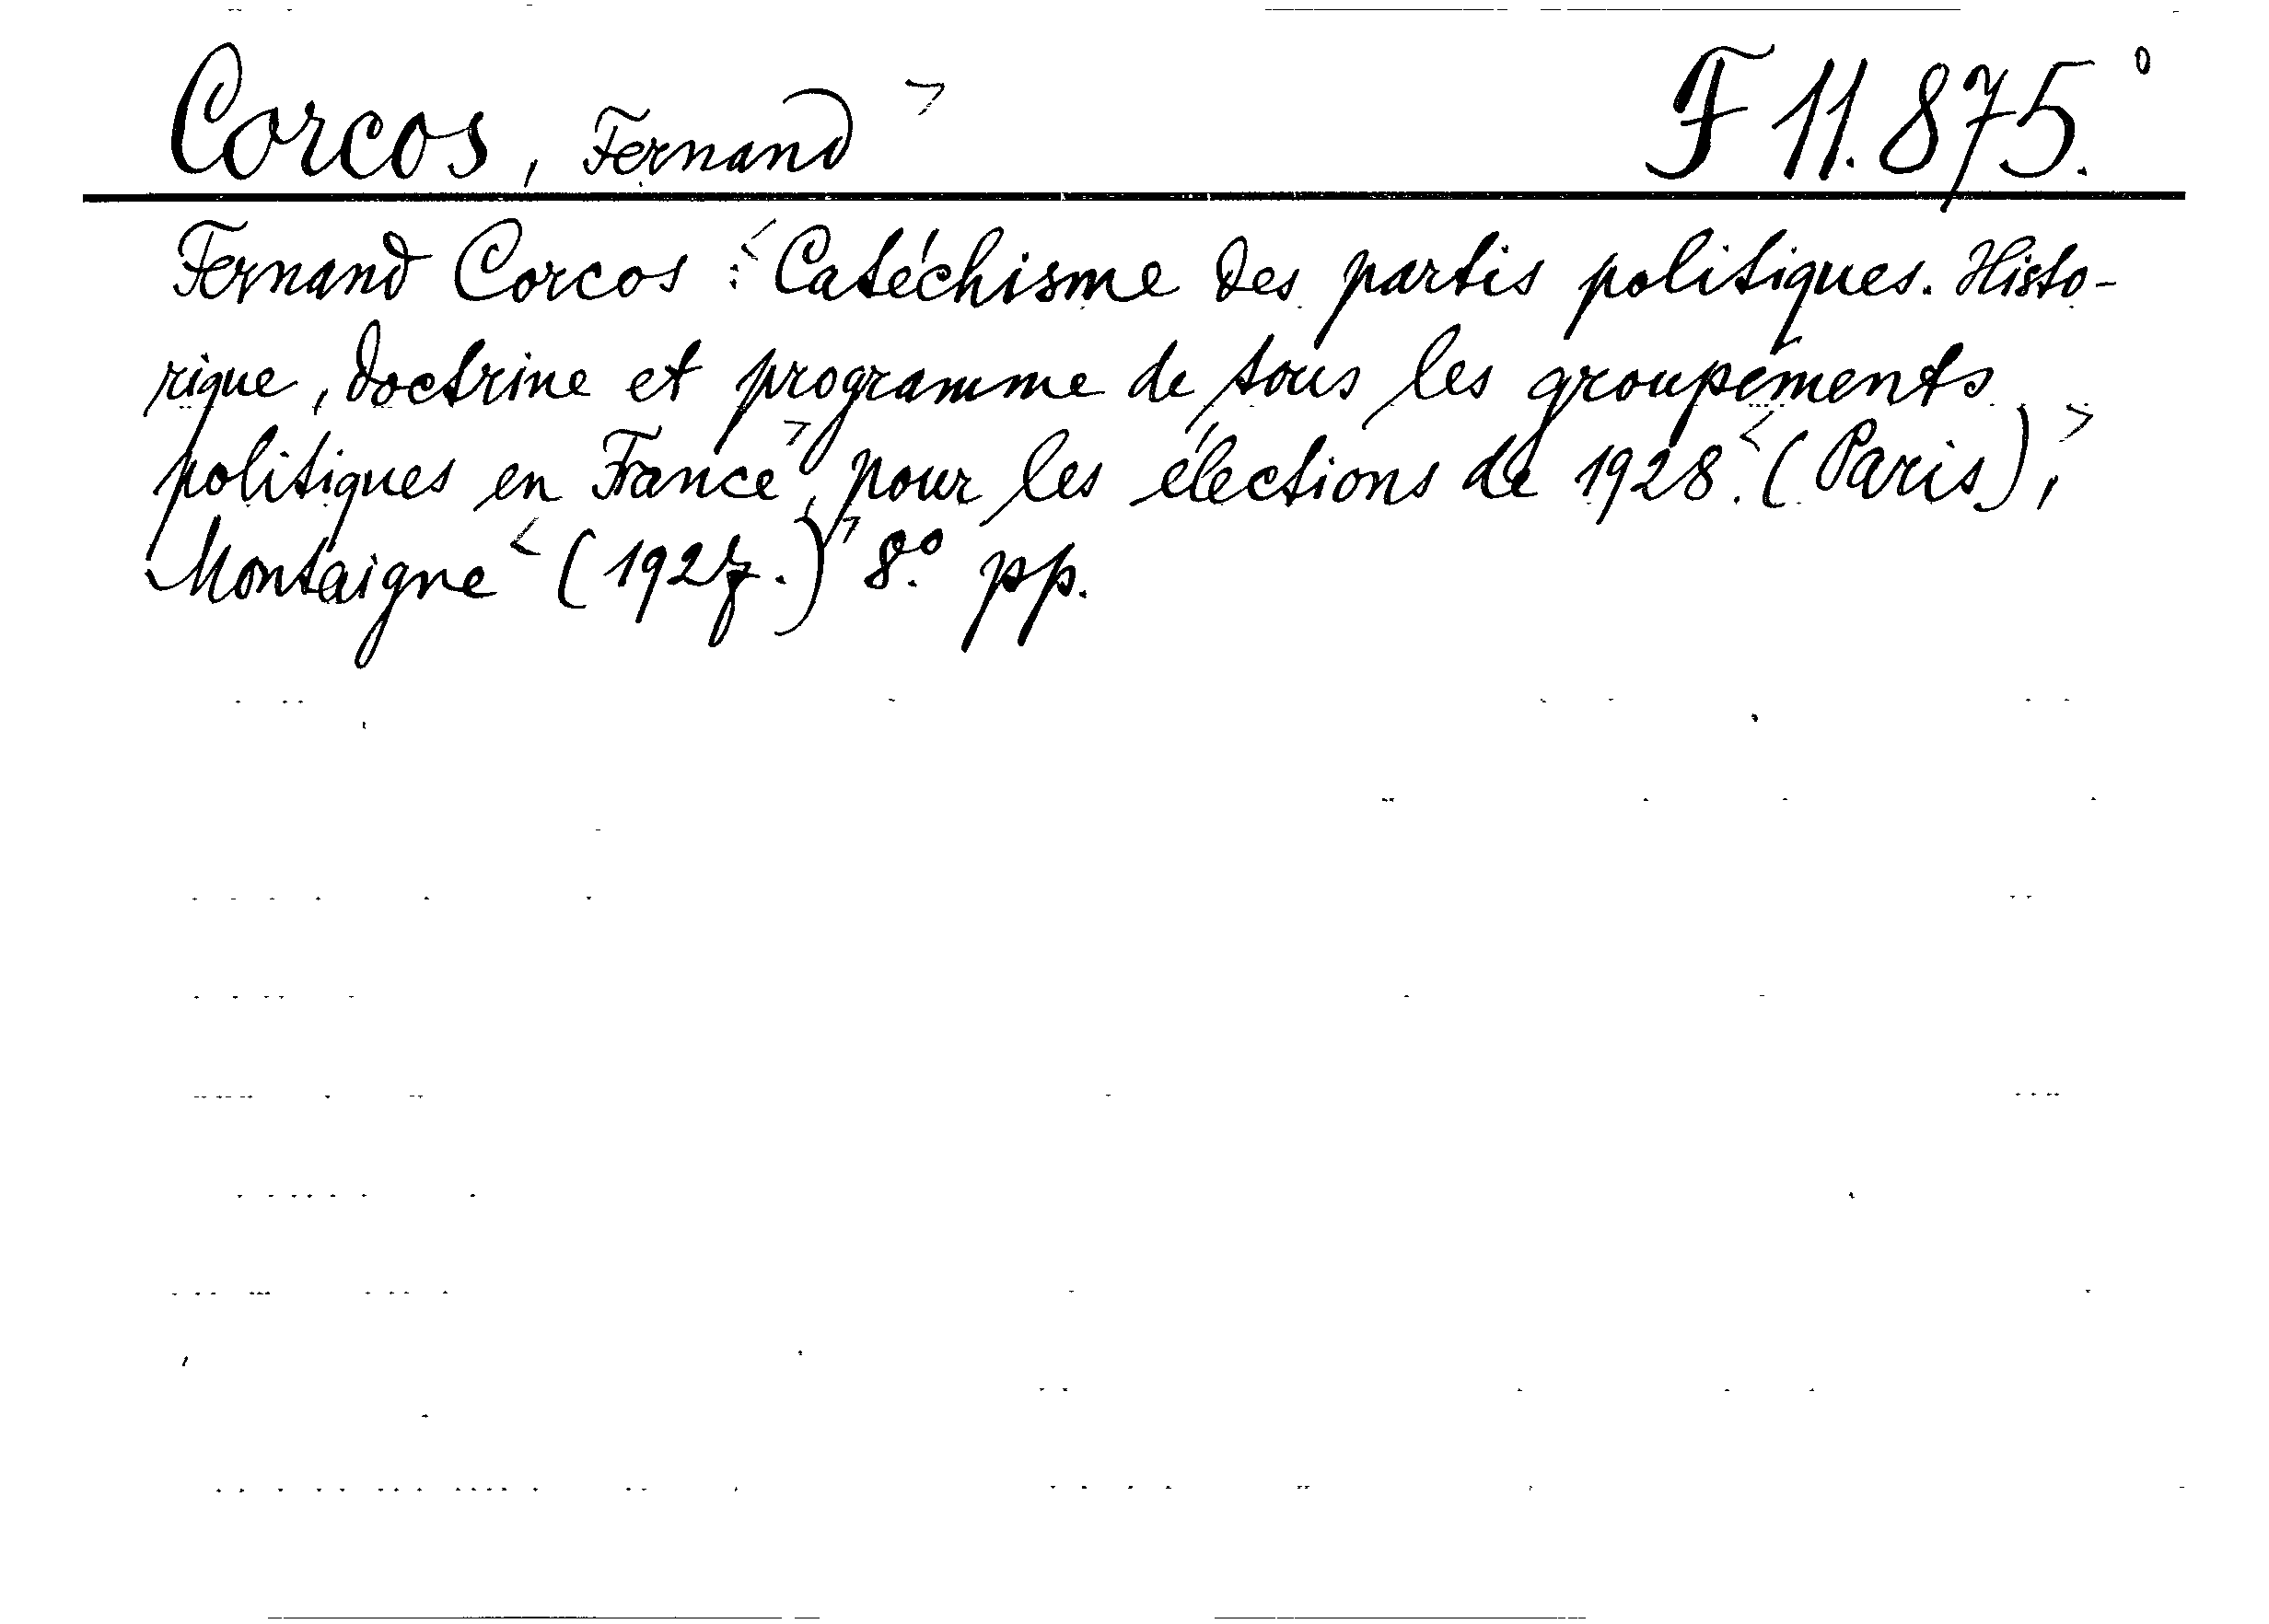 Corcos, Fernand F 11.875.°
Fernand Corcos : Catéchisme des partis politiques. Histo-
rique, doctrine et programme de tous les groupements
politiques en France, pour les élections de 1928. (Paris),
Montaigne (1927.) 8.° pp.